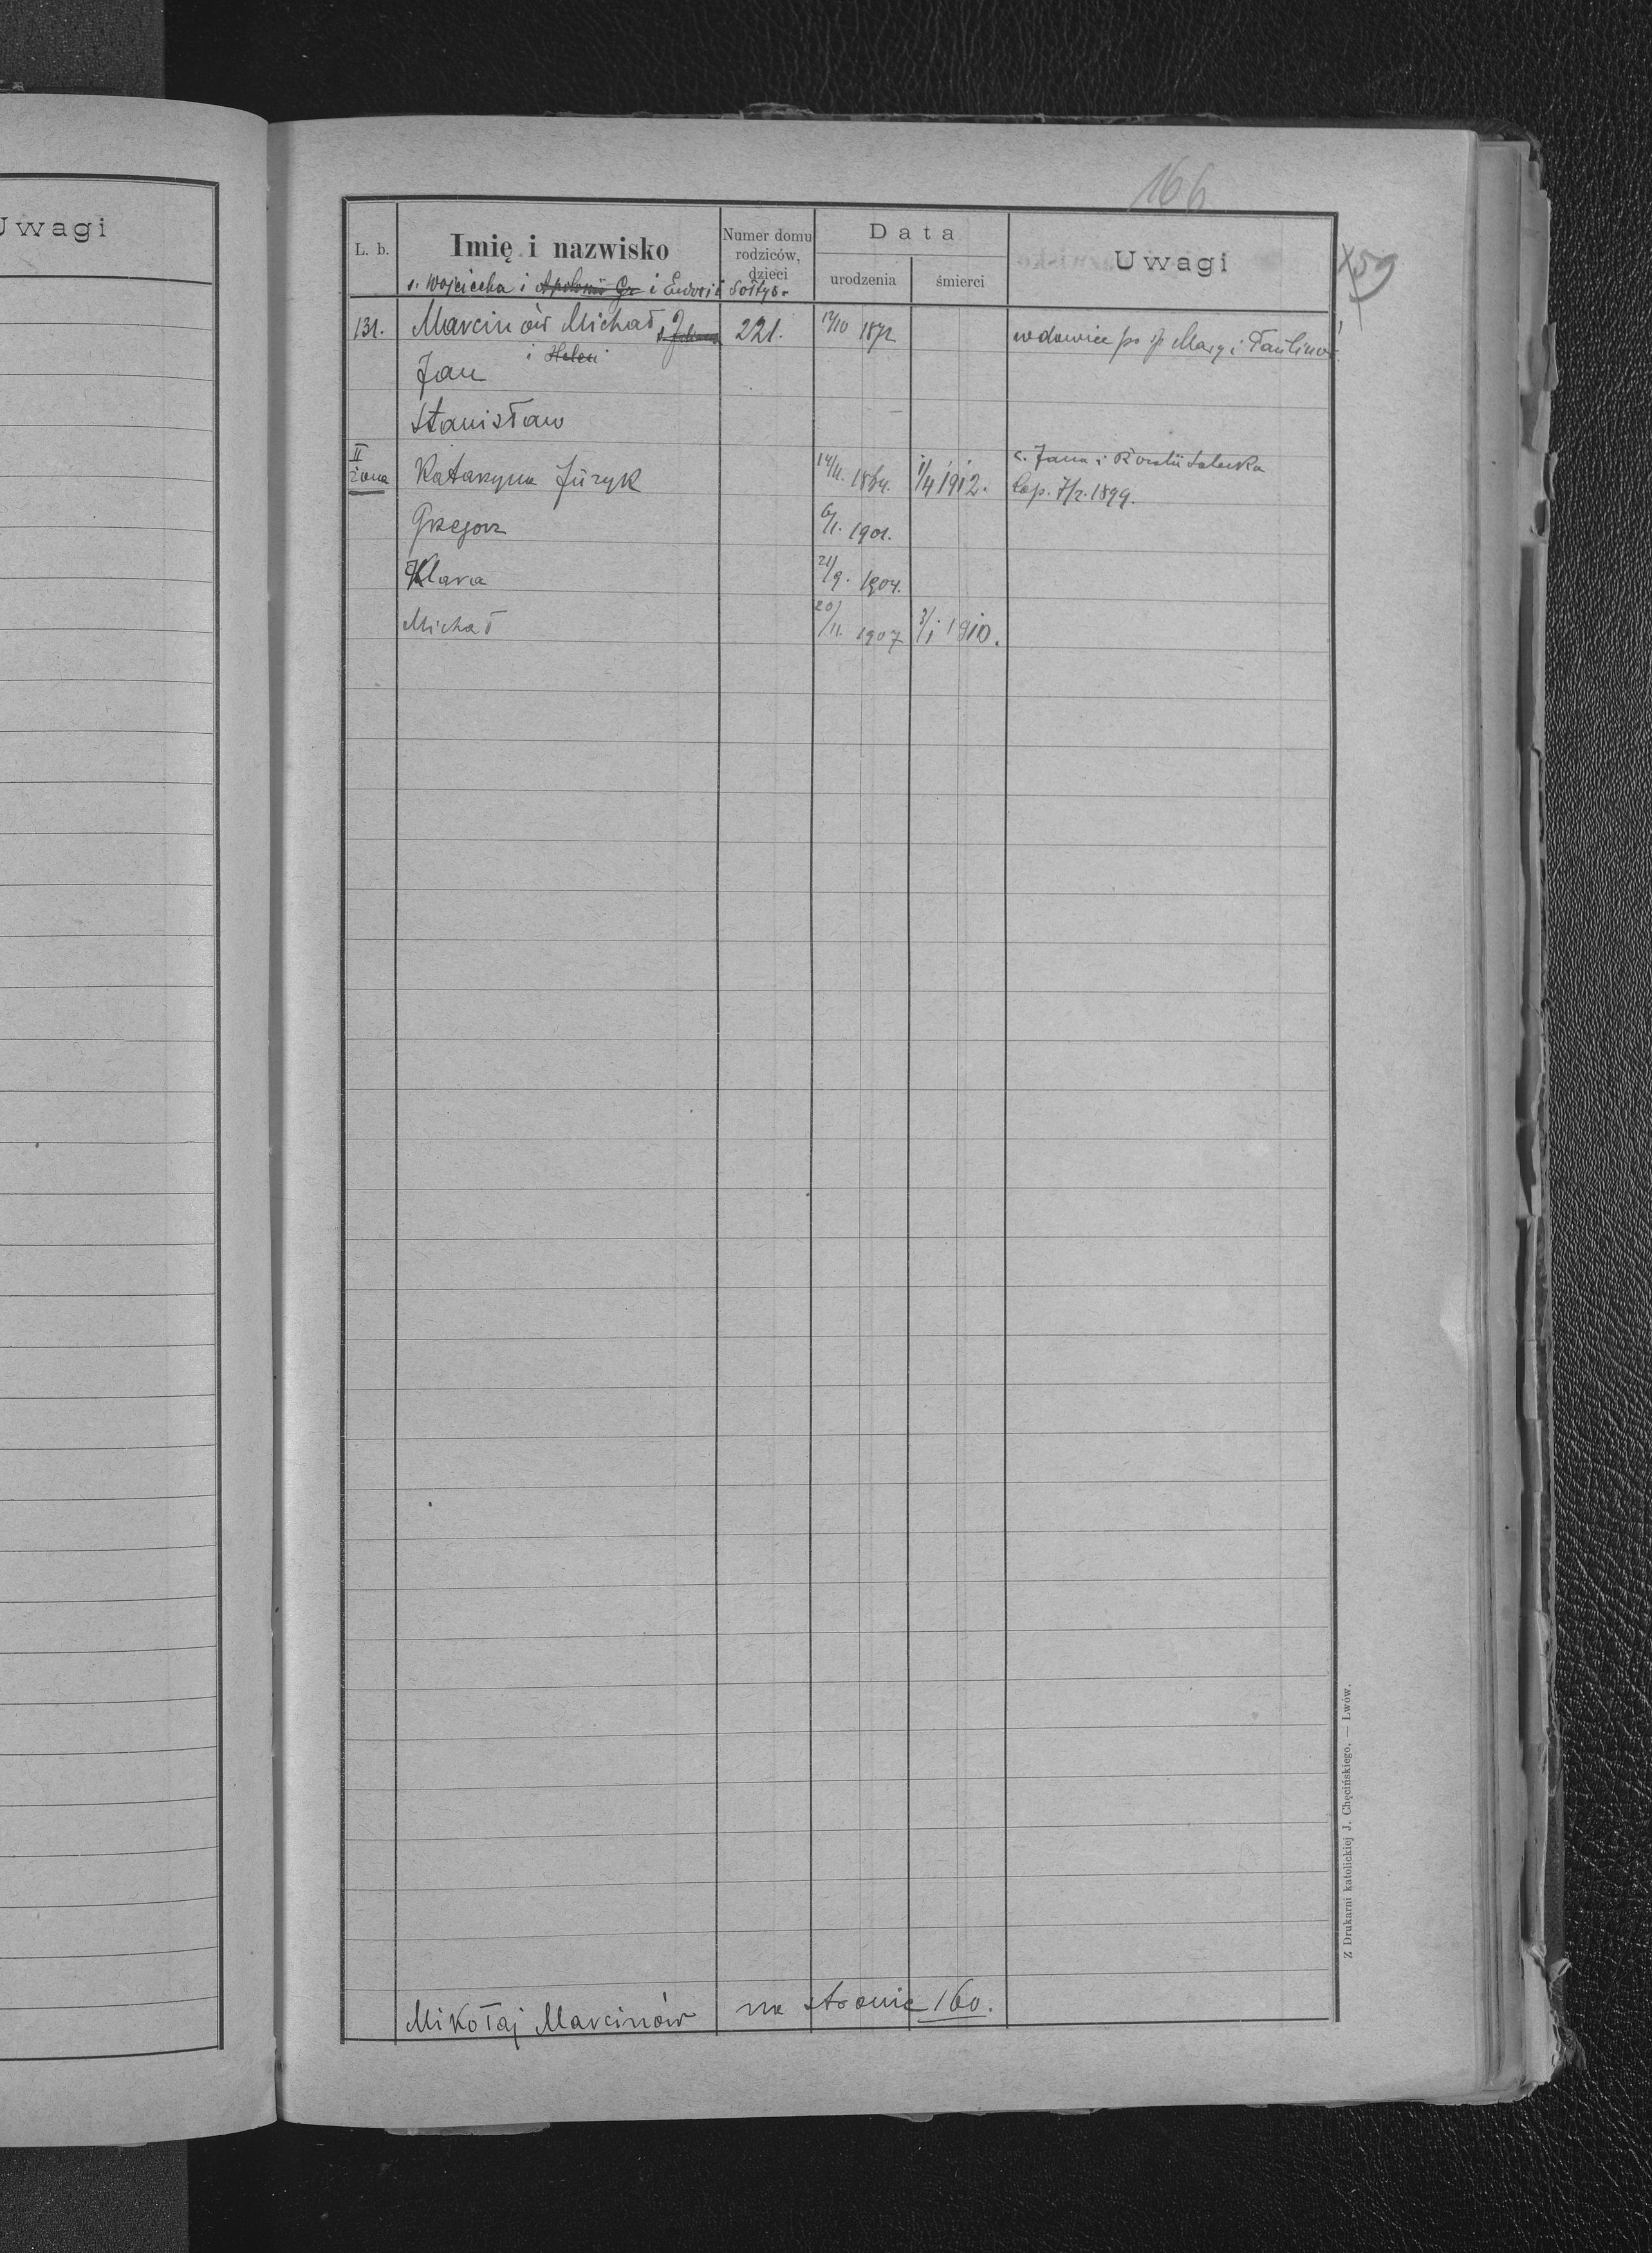 Uwagi
166
L. b.
Imię i nazwisko
Numer domu
rodziców,
dzieci
Data
urodzenia
śmierci
Uwagi
X59
s. Wojciecha i Apolonii Gr i Eudorii Sołtys.
131. Marcinów Michał s. 221. 12/10 1872 wdowiec po śp Mary i Paulinow.
i Heleni
Jan
Stanisław
II
żona Katarzyna Júzyk 14/11. 1864. 1/4 1912. c. Jana i Rozalii
Cop. 7/2. 1899.
Grzegorz 6/1. 1901.
Klara 21/9. 1904.
Michał 20/11. 1907 3/1 1910.
Mikołaj Marcinów na stronie 160.
Z Drukarni katolickiej J. Chęcińskiego. — Lwów.